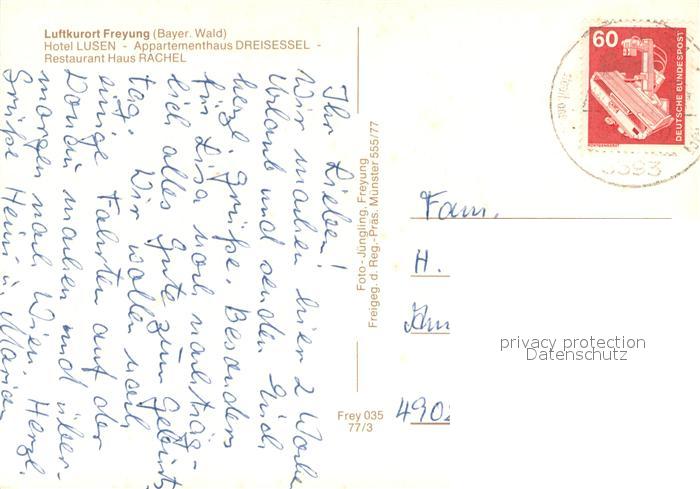 Luftkurort Freyung (Bayer. Wald)
Hotel LUSEN - Appartementhaus DREISESSEL -
Restaurant Haus RACHEL
Ihr Lieben!
Wir machen hier 2 Wochen
Urlaub und senden Euch
herzl. Grüße. Besonders
für Lisa noch nachträg-
lich alles Gute zum Geburts
tag. Wir wollen noch
einige Fahrten auf der
Donau machen und über-
morgen nach Wien. Herzl.
Grüße Hein u. Marian
Foto - Jüngling, Freyung
Freigeg. d. Reg.-Präs. Münster 555/77
Frey 035
77/3
60
DEUTSCHE BUNDESPOST
RÖNTGENGERÄT
8393
Fam.
H.
490
privacy protection
Datenschutz